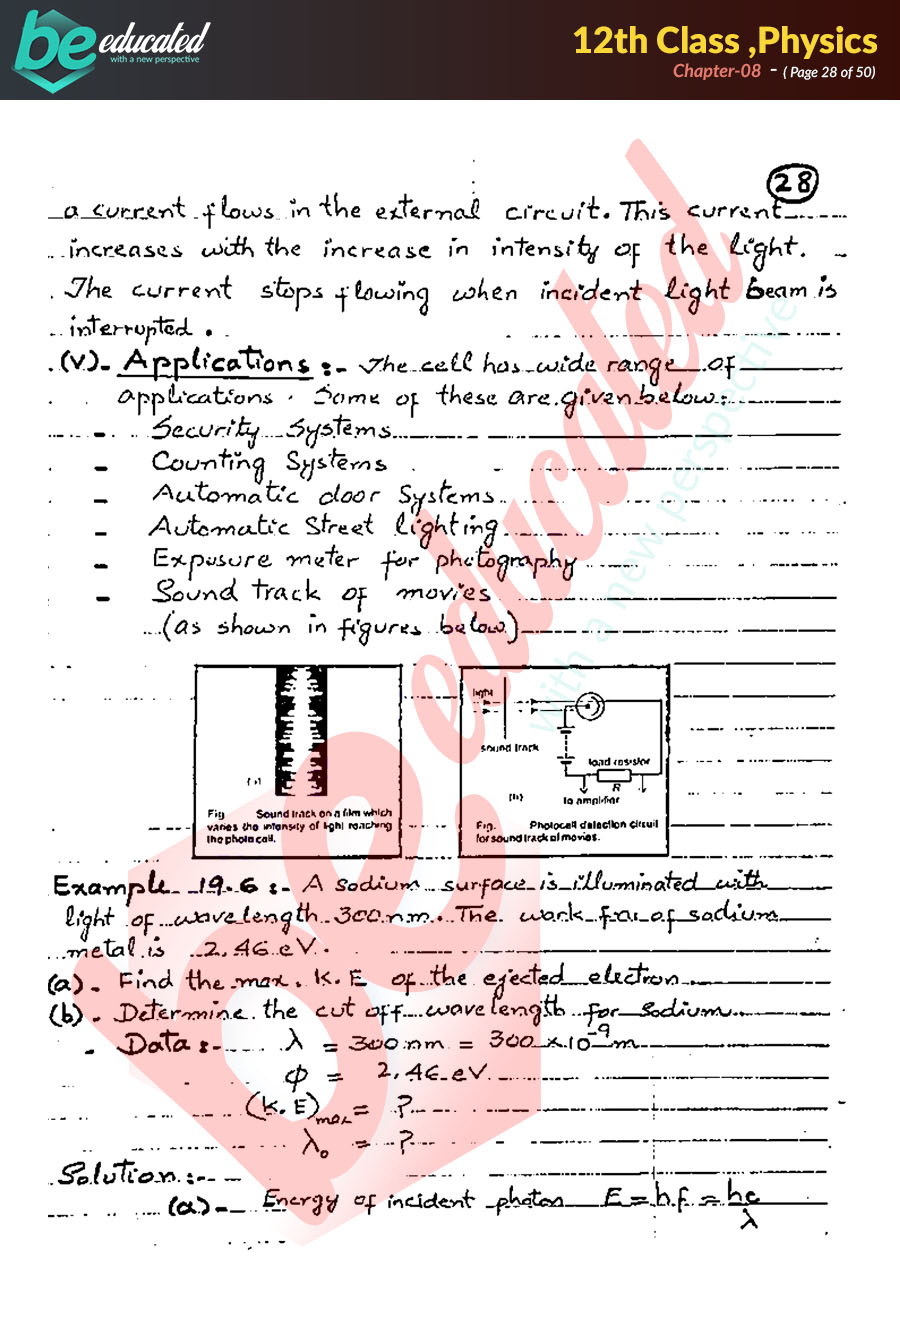 be educated
with a new perspective
12th Class ,Physics
Chapter-08 - ( Page 28 of 50)
28
a current flows in the external circuit. This current
increases with the increase in intensity of the light.
The current stops flowing when incident light beam is
interrupted.
(V)- Applications:- The cell has wide range of
applications. Some of these are given below:
- Security Systems
- Counting Systems
- Automatic door Systems
- Automatic Street lighting
- Exposure meter for photography
- Sound track of movies
(as shown in figures below)
(a)
Fig Sound track on a film which
varies the intensity of light reaching
the photo cell.
light
sound track
load resistor
R
(b)
to amplifier
Fig. Photocell detection circuit
for sound track of movies.
Example 19.6:- A sodium surface is illuminated with
light of wavelength 300 nm. The work fn. of sodium
metal is 2.46 eV.
(a)- Find the max. K.E of the ejected electron
(b)- Determine the cut off wavelength for sodium
- Data:- λ = 300 nm = 300 ×10⁻⁹ m
Φ = 2.46 eV
(K.E)max = ?
λ₀ = ?
Solution:-
(a)- Energy of incident photon E = h.f = hc/λ
be educated
with a new perspective